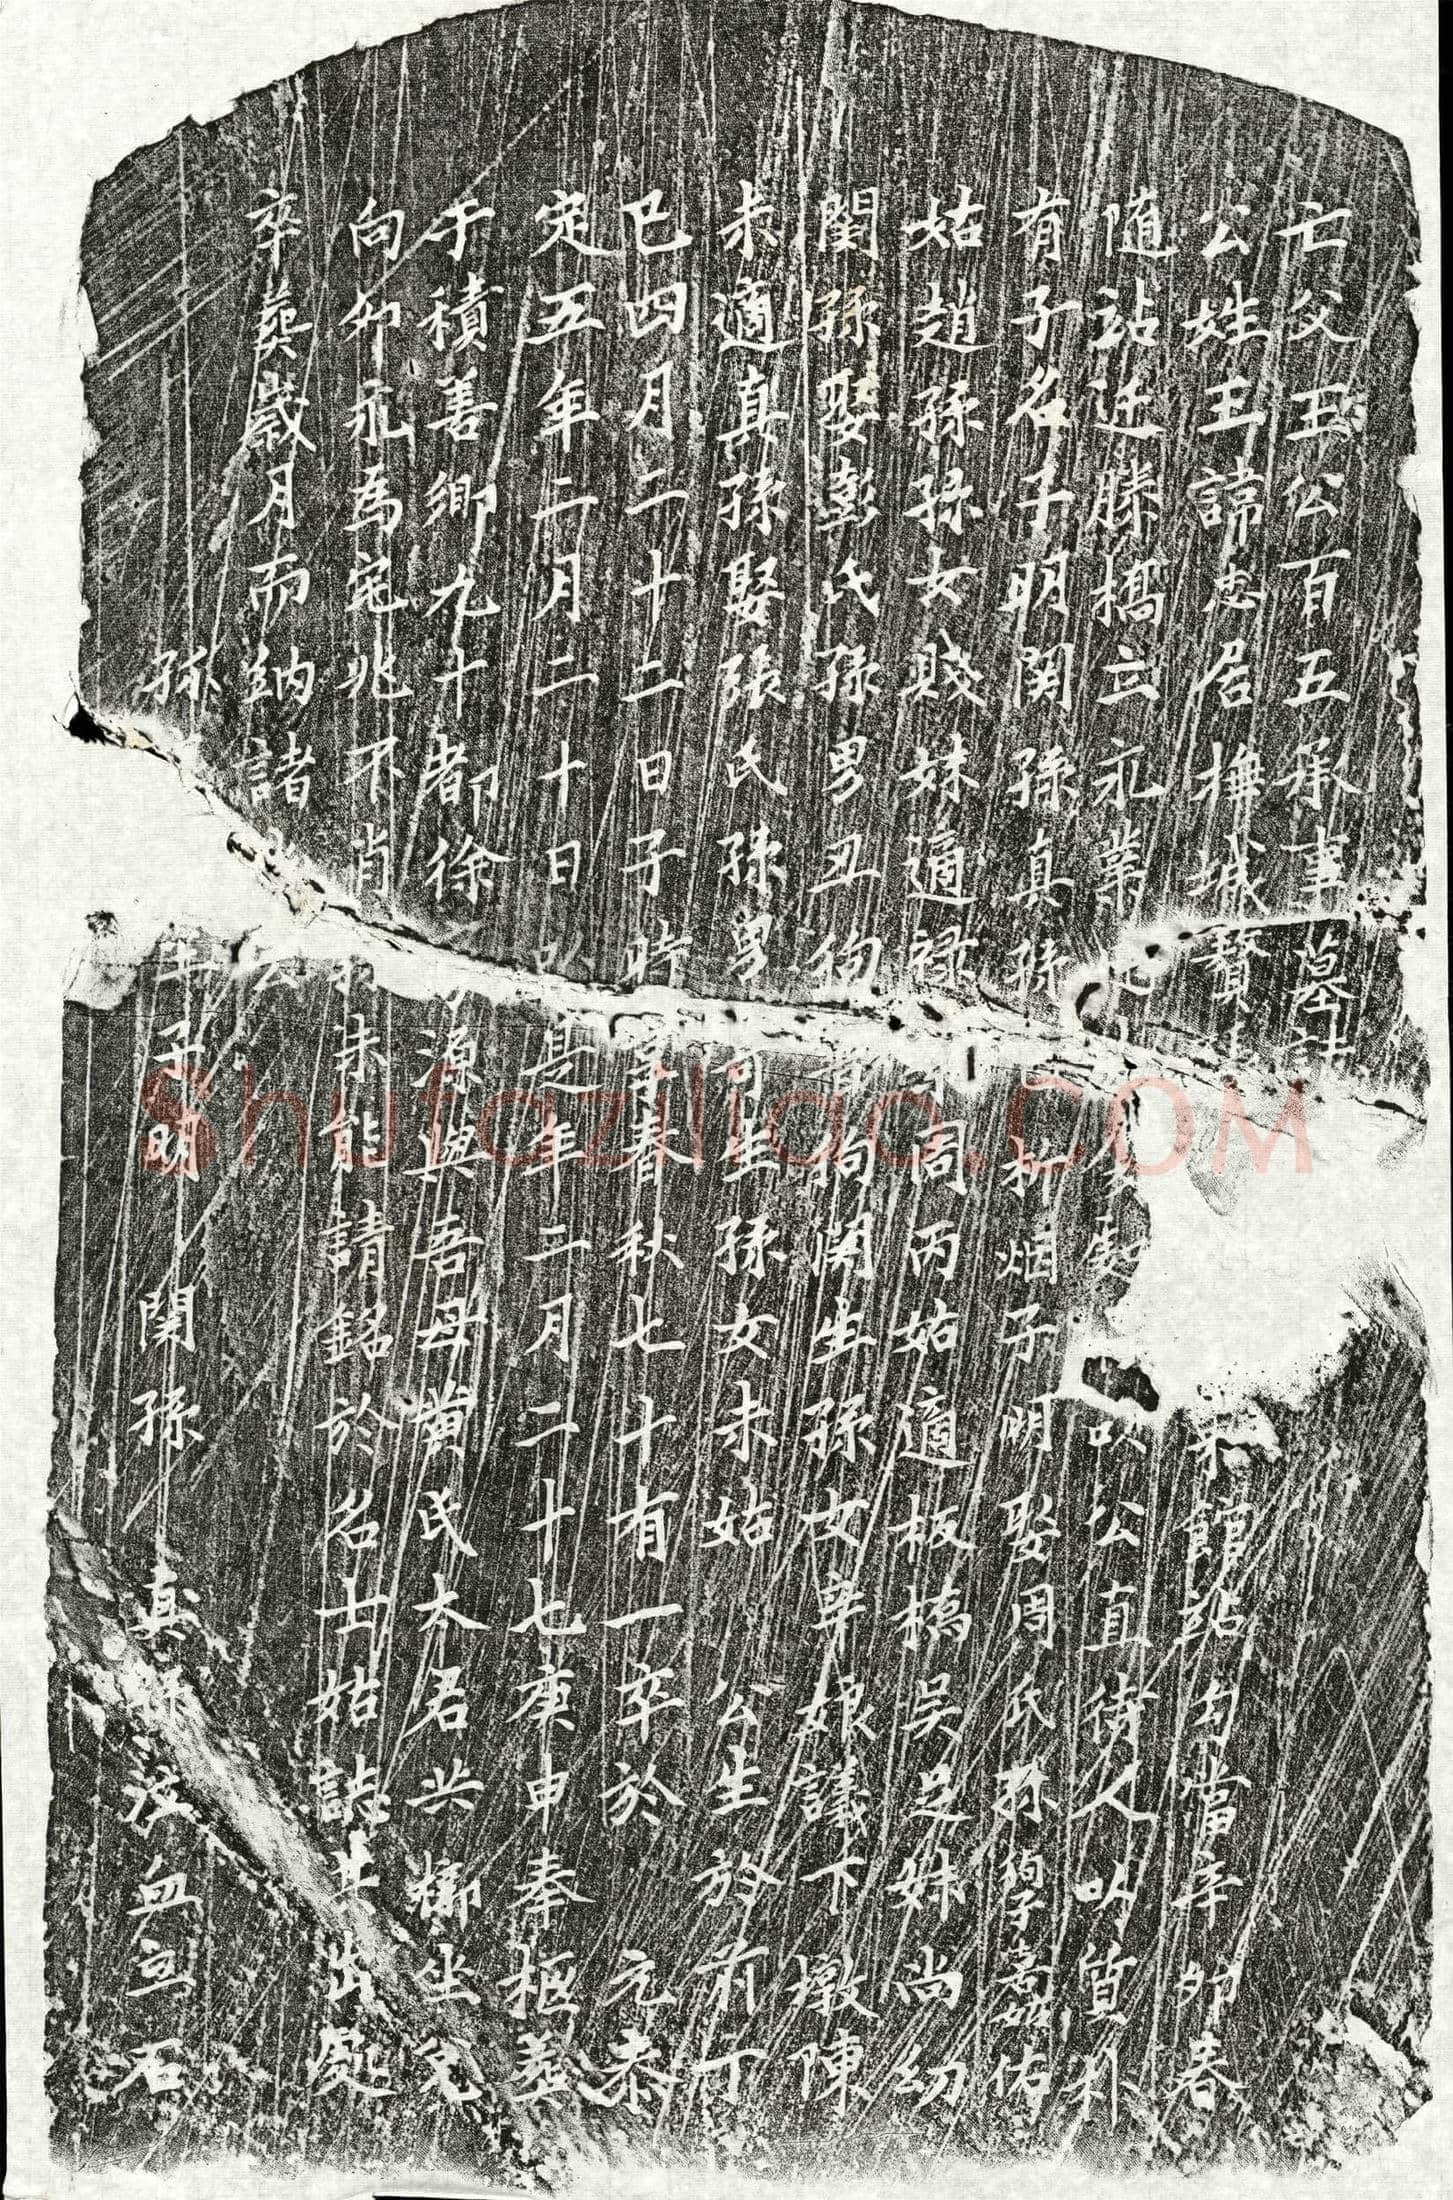 亡父王公百五承事墓
公姓王諱志居櫵城寶 館站勾當辛卯春
随站迁滕橋立永業 以公直待人以質朴
有子名子明閏孫真孫 和烟子子明娶周氏孫 佑
姑趙孫孫女賤妹適禄 同丙姑適板橋吴足姊尚幼
閏孫娶彭氏孫男丑徇 狗閏生孫女辛娘議下墩陳
未適真孫娶張氏孫男 生孫女未姑 公生於前丁
巳四月二十二日子時 享春秋七十有一卒於 元泰
定五年二月二十日 是年二月二十七庚申奉柩葬
于積善鄉九十都徐 源與吾母黄氏太君共槨坐
向卯永為宅兆不肖 未能請銘於名士姑誌其出處
卒葬歲月而納諸
孫 子明 閏孫 真孫 泣血立石
Shufaziliao.COM